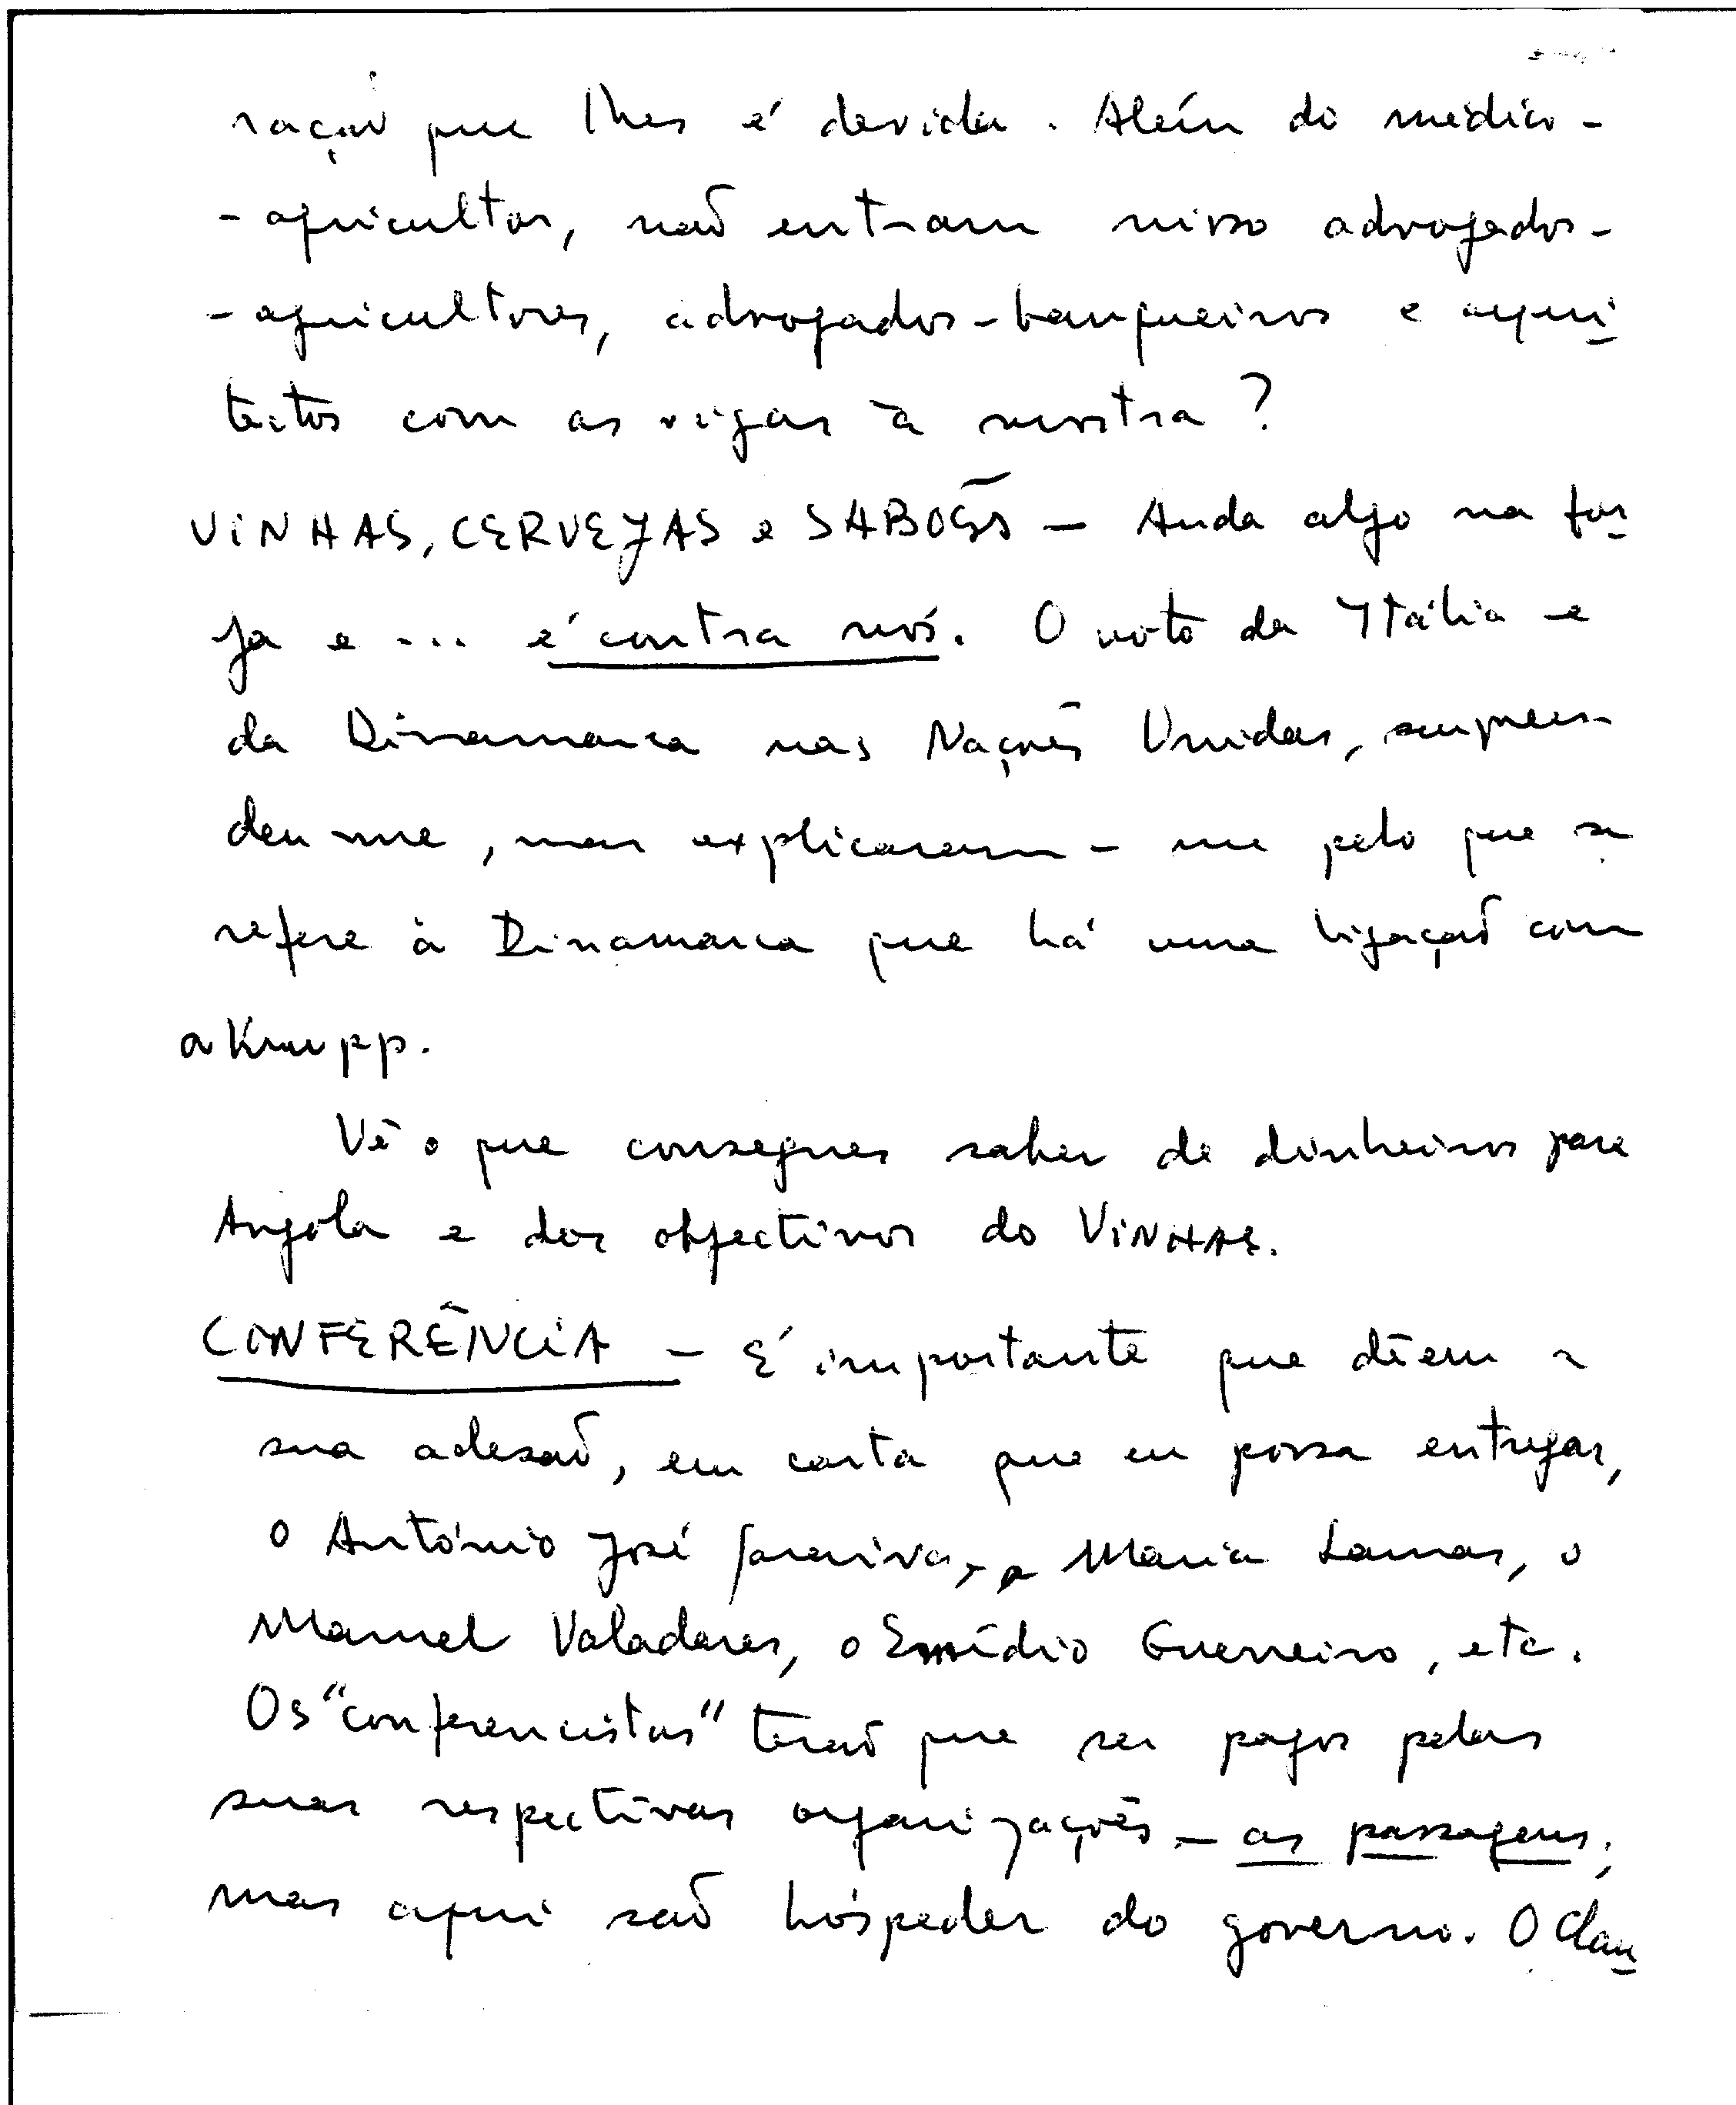 ração que lhes é devida. Além do médico-
-agricultor, não entram nisso advogados-
-agricultores, advogados-banqueiros e arqui
tectos com as vigas à mostra?
VINHAS, CERVEJAS e SABOES — Anda algo na for
ja e ... é contra nós. O voto da Itália e
da Dinamarca nas Nações Unidas, surpreen-
deu me, mas explicaram-me pelo que se
refere à Dinamarca que há uma ligação com
a Krupp.
Vê o que consegues saber de dinheiros para
Angola e dos objectivos do VINHAS.
CONFERÊNCIA — É importante que dêem a
sua adesão, em carta que eu possa entregar,
o António José Saraiva, a Maria Lamas, o
Manuel Valadares, o Emídio Guerreiro, etc.
Os "conferencistas" terão que ser pagos pelas
suas respectivas organizações — as passagens;
mas aqui são hóspedes do governo. O Clau